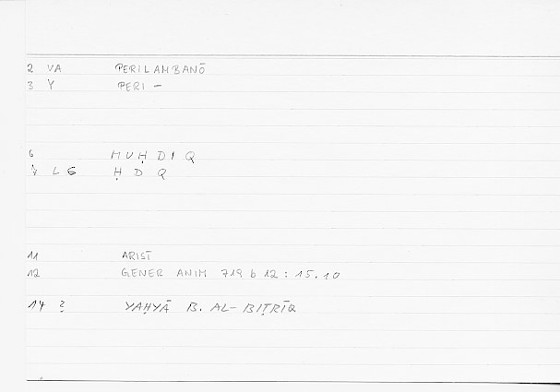 2 VA PERILAMBANŌ
3 Y PERI –
6 MUḤDIQ
LG Ḥ D Q
11 ARIST
12 GENER ANIM 719 b 12 : 15.10
14 ? YAḤYĀ B. AL-BIṬRĪQ